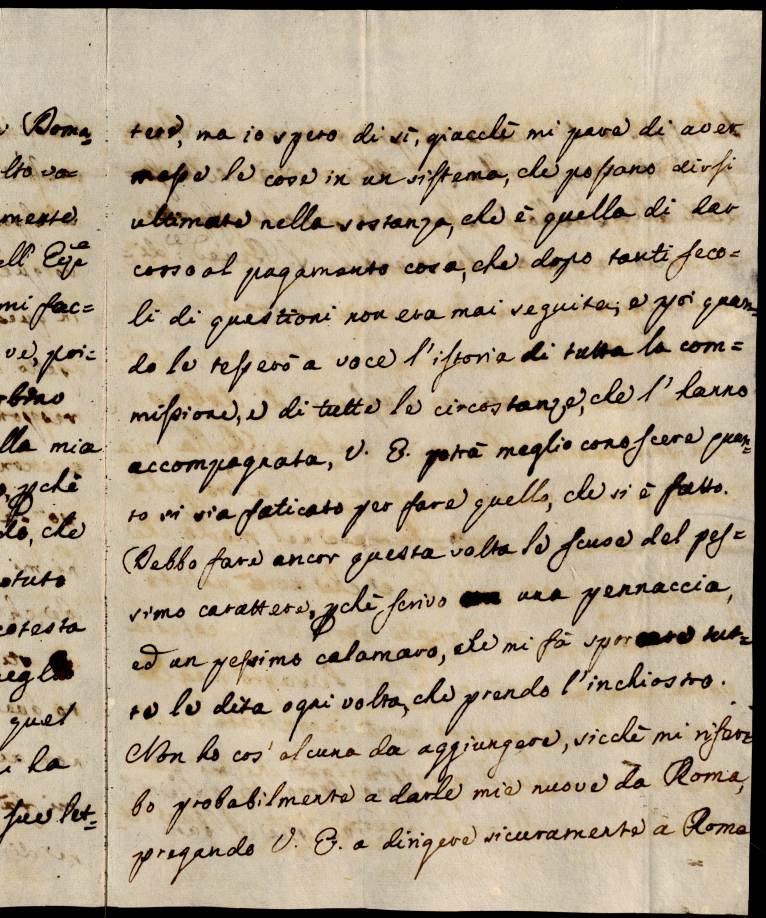 a Doma=
lto va=
mente
ell' Ecc.za
mi fac=
ve, poi=
rbino
lla mia
o, pchè
do, che
otuto
cotesta
quel
i ha
sue let=
tere, ma io spero di sì, giacchè mi pare di aver
messe le cose in un sistema, che possano dirsi
ultimate nella sostanza, che è quella di dar
corso al pagamento cosa, che dopo tanti seco=
li di questioni non era mai seguita; e poi quan=
do le tesserò a voce l'istoria di tutta la com=
missione, e di tutte le circostanze, che l'hanno
accompagnata, V. E. potrà meglio conoscere quan=
to si sia faticato per fare quello, che si è fatto.
Debbo fare ancor questa volta le scuse del pes=
simo carattere, pchè scrivo una pennaccia,
ed un pessimo calamaro, che mi fà sporcare tut=
te le dita ogni volta, che prendo l'inchiostro.
Non ho cos' alcuna da aggiungere, sicchè mi riser=
bo probabilmente a darle mie nuove da Roma,
pregando V. E. a dirigere sicuramente a Roma